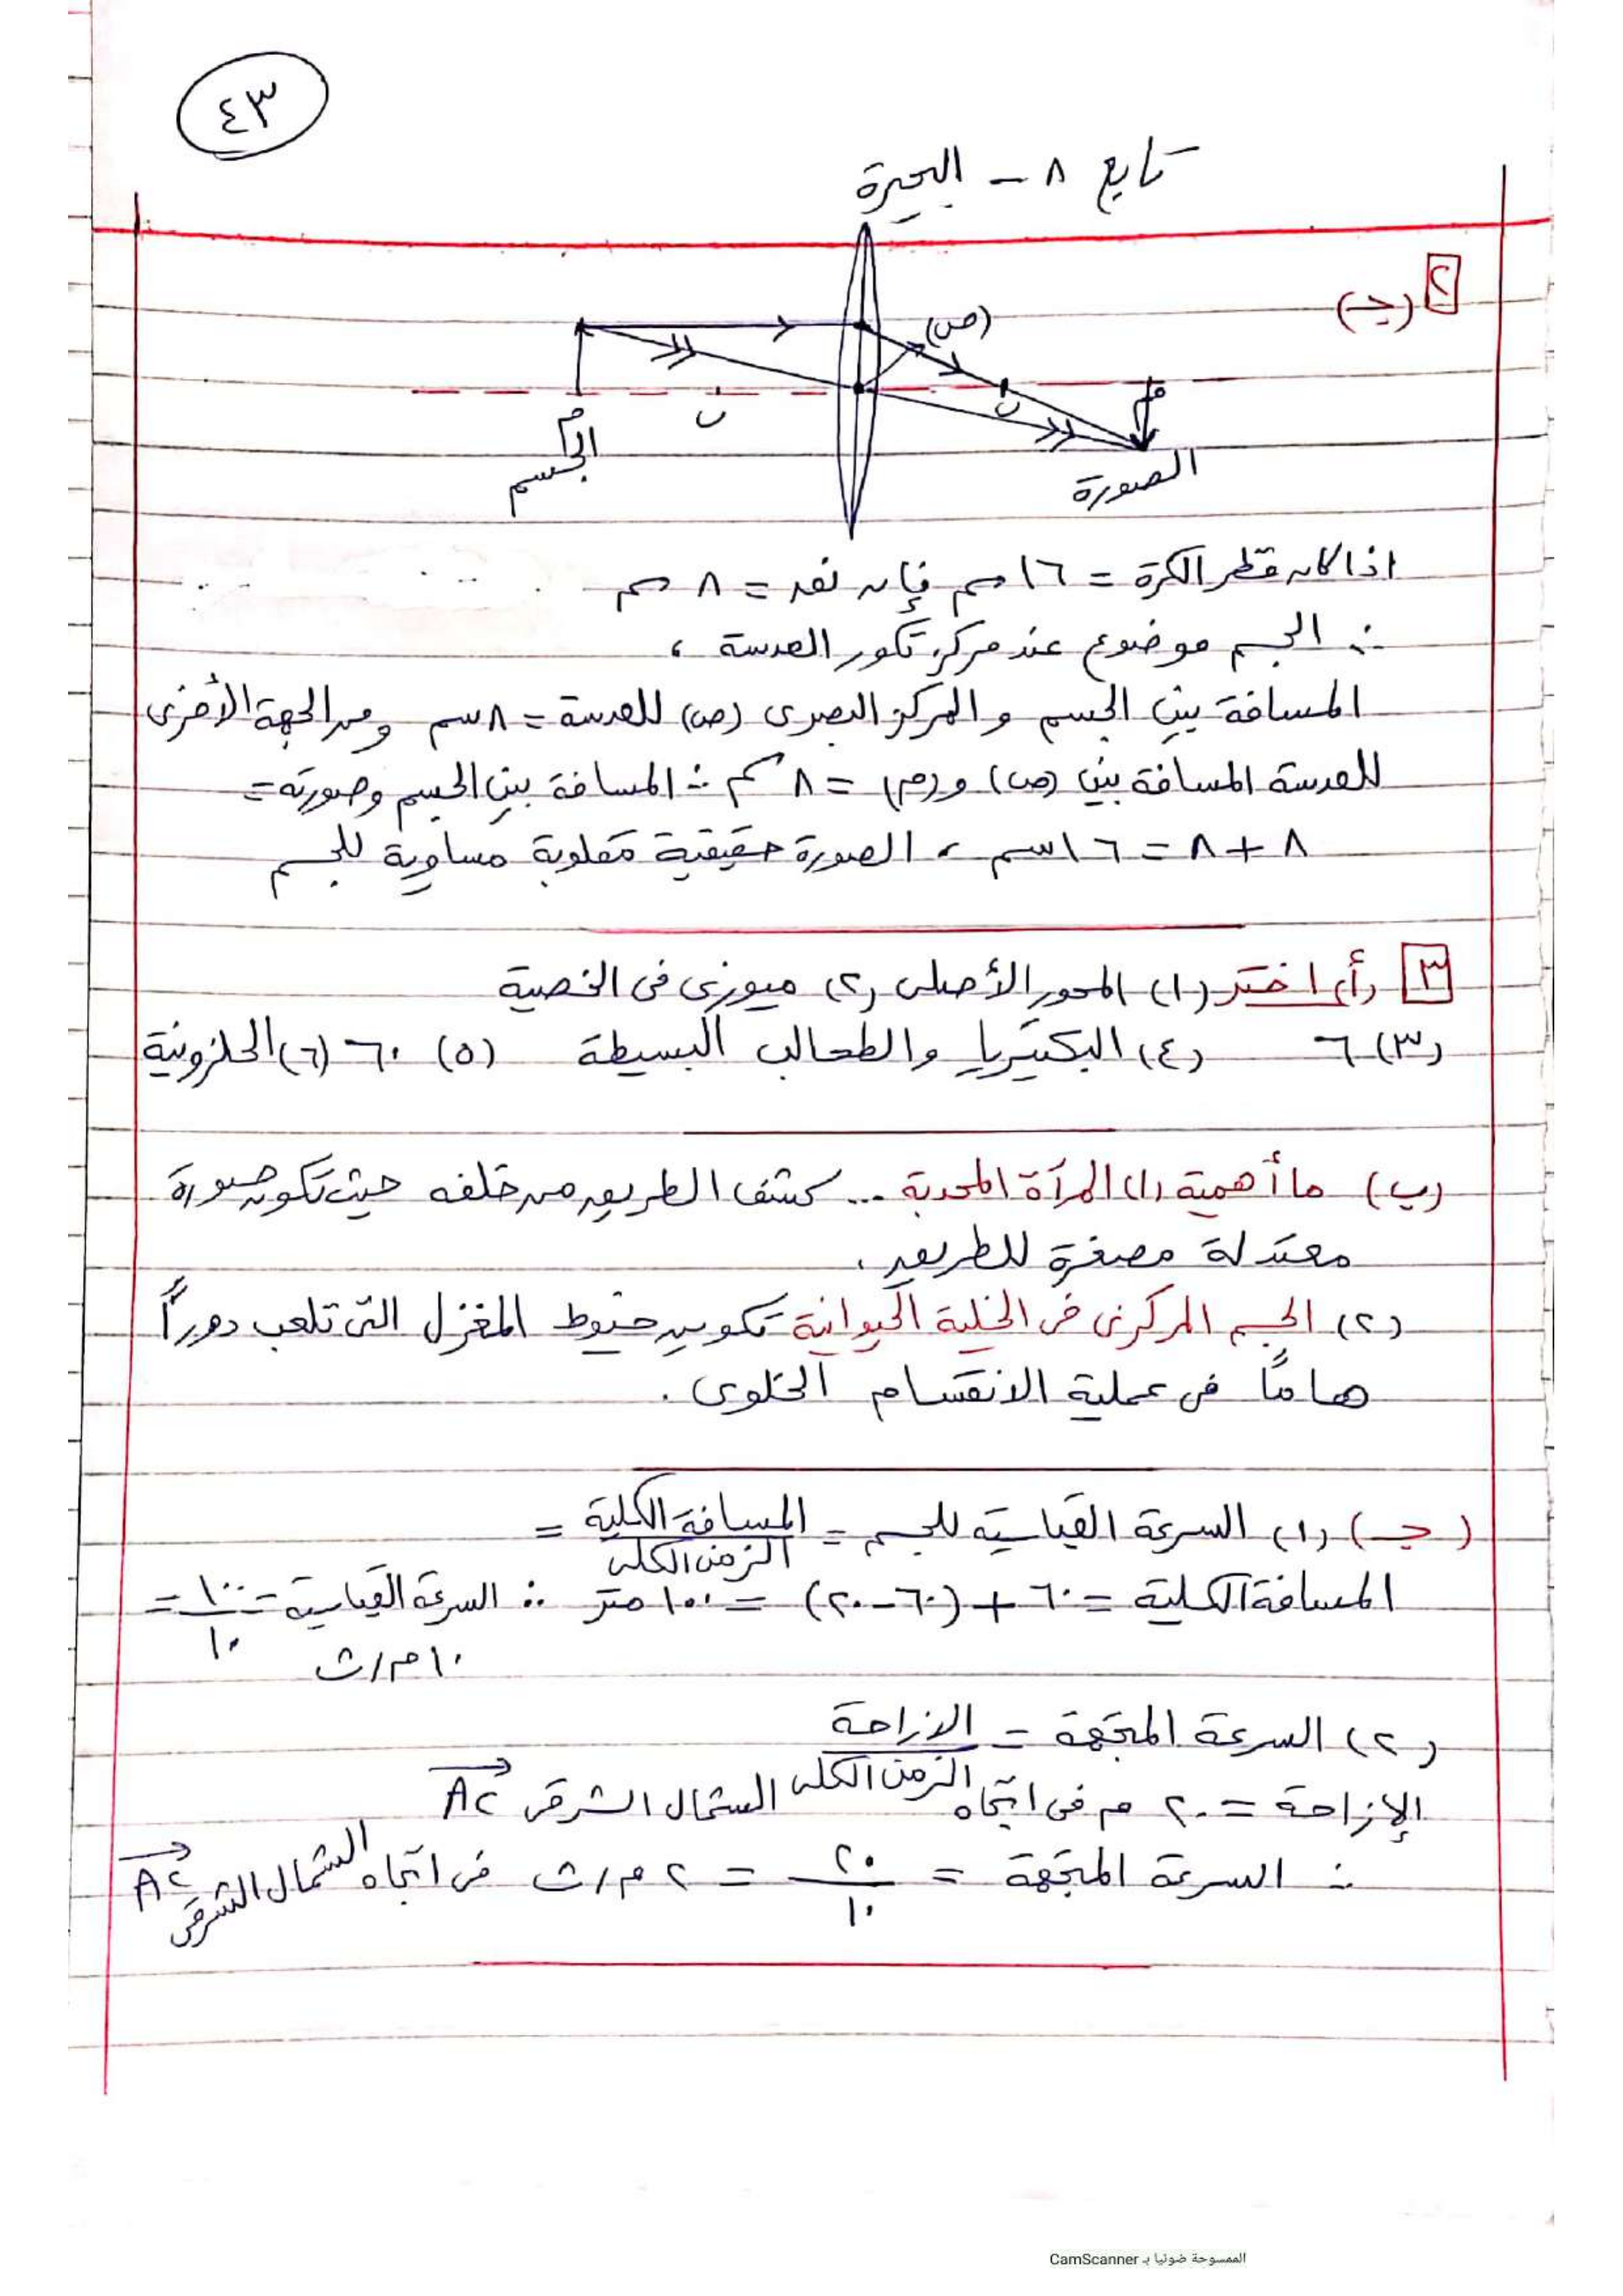 ٤٣
تابع ٨ - البحيرة
٢ (جـ)
(ص)
م
ن
ن
م
الجسم
الصورة
اذا كان قطر الكرة = ١٦ سم فإن نصف = ٨ سم
∴ الجسم موضوع عند مركز تكور العدسة ،
المسافة بين الجسم و المركز البصرى (ص) للعدسة = ٨ سم ومن الجهة الأخرى
للعدسة المسافة بين (ص) و (م) = ٨ سم ∴ المسافة بين الجسم وصورته =
٨ + ٨ = ١٦ سم ، الصورة حقيقية مقلوبة مساوية للجسم
٣ (أ) اختر (١) المحور الأصلى (٢) ميوزى فى الخصية
(٣) ٦ (٤) البكتيريا والطحالب البسيطة (٥) ٦٠ (٦) الحلزونية
(ب) ما أهمية (١) المرآة المحدبة ... كشف الطريق من خلفه حيث تكون صورة
معتدلة مصغرة للطريق .
(٢) الجسم المركزى فى الخلية الحيوانية تكوين خيوط المغزل التى تلعب دوراً
هاماً فى عملية الانقسام الخلوى .
(جـ) (١) السرعة القياسية للجسم = المسافة الكلية =
الزمن الكلى
المسافة الكلية = ٦٠ + (٦٠-٢٠) = ١٠٠ متر ∴ السرعة القياسية = ١٠٠ =
١٠
١٠ م/ث
(٢) السرعة المتجهة = الازاحة
الزمن الكلى
الإزاحة = ٢٠ م فى اتجاه الشمال الشرقى AC
∴ السرعة المتجهة = ٢٠ = ٢ م/ث فى اتجاه الشمال الشرقى AC
١٠
الممسوحة ضوئيا بـ CamScanner